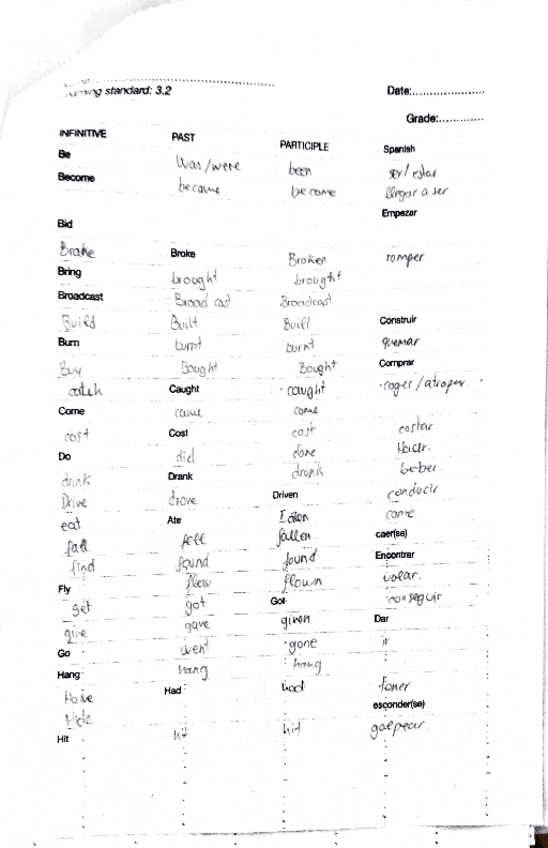 ning standard: 3.2 Date:
Grade:
INFINITIVE PAST PARTICIPLE Spanish
Be Was/were been ser/estar
Become became become llegar a ser
Empezar
Bid
Brake Broke Broken romper
Bring brought brought
Broadcast Broad cast Broadcast
Build Built Built Construir
Burn burnt burnt quemar
Buy Bought Bought Comprar
catch Caught caught coger/atrapar
Come came come
cost Cost cost costar
Do did done Hacer
drink Drank drunk beber
Drive drove Driven conducir
eat Ate Eaten come
fall fell fallen caer(se)
find found found Encontrar
Fly flew flown volar
get got Got conseguir
give gave given Dar
Go went gone ir
Hang hang hang
Have Had had
Hide esconder(se)
Hit hit hit golpear